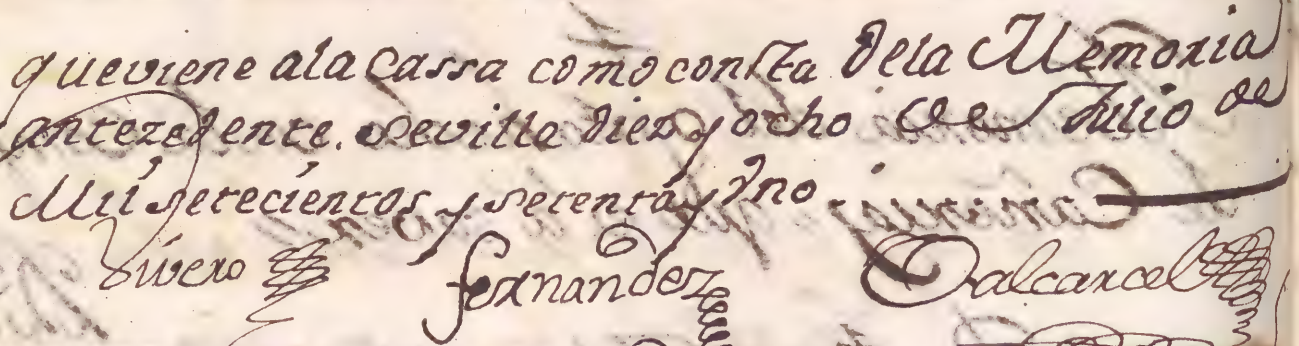 que viene a la Cassa como consta de la Memoria
antezedente. Sevilla diez y ocho de Julio de
Mil setecientos y setenta y Vno
Vivero
fernandez
Valcarcel